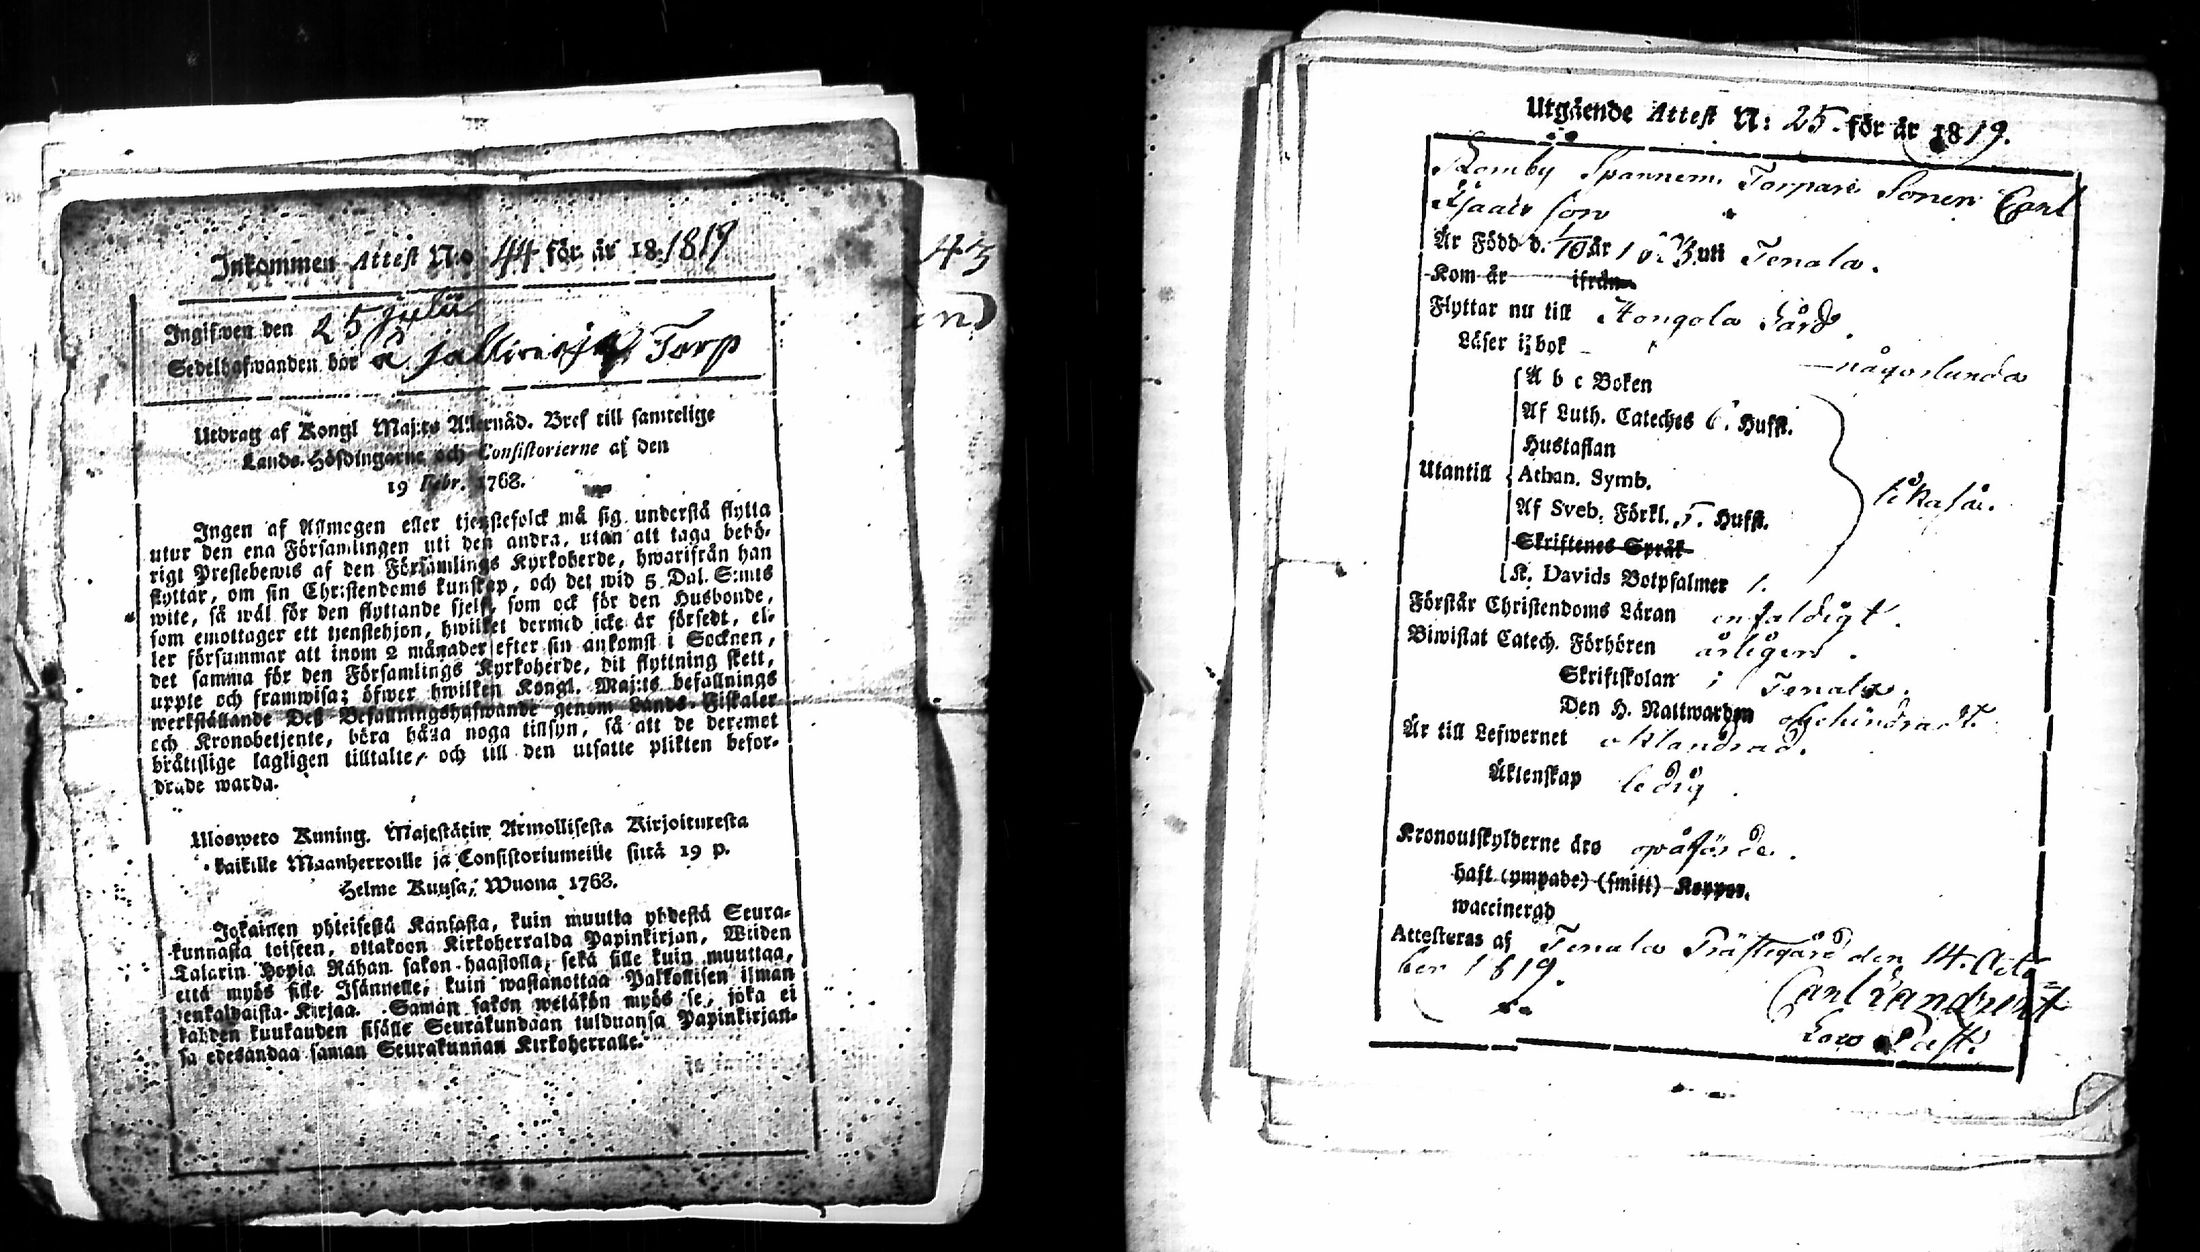 Inkommen Attest N:o 44 för år 18 1819
Ingifwen den 25 Julii
Sedelhafwanden bor å Torp
Utdrag af Kongl Maj:ts Allernåd. Bref till samtelige
Lands-Höfdingarne och Consistorierne af den
19 Febr. 1768.
Ingen af Allmogen eller tjenstefolck må sig understå flytta
utur den ena Församlingen uti den andra, utan att taga behö-
rigt Prestebewis af den Församlings Kyrkoherde, hwarifrån han
flyttar, om sin Christendoms kunskap, och det wid 5 Dal. S:mts
wite, så wäl för den flyttande sjelf, som ock för den Husbonde,
som emottager ett tjenstehjon, hwilket dermed icke är försedt, el-
ler försummar att inom 2 månader efter sin ankomst i Socknen,
det samma för den Församlings Kyrkoherde, dit flyttning skett,
uppte och framwisa; öfwer hwilken Kongl. Maj:ts befallnings
werkställande Deß Befallningshafwande genom Lands-Fiskaler
och Kronobetjente, böra hålla noga tillsyn, så att de deremot
bråttslige lagligen tilltalte, och till den utsatte plikten befor-
drade warda.
Ulosweto Kuning. Majestätin Armollisesta Kirjoituresta
kaikille Maanherroille ja Consistoriumeille siitä 19 p.
Helme Kuusa, Wuona 1768.
Jokainen yhteisestä Kansasta, kuin muutta yhdestä Seura-
kunnasta toiseen, ottakoon Kirkoherralda Papinkirjan, Wiiden
Talarin Hopia Rahan sakon haastolla, sekä sille kuin muuttaa,
että myös sille Isännelle, kuin wastanottaa Palkollisen ilman
senkaltaista Kirjaa. Saman sakon wetäkön myös se, joka ei
kahden kuukauden sisälle Seurakundaan tulduansa Papinkirjan-
sa edesandaa saman Seurakunnan Kirkoherralle.
43
Utgående Attest N: 25. för år 1819.
Torpare Sonen Carl
Är Född d. 1/10 år uti Tenala.
Kom år ifrån
Flyttar nu till Gård.
Läser i bok någorlunda
A b c Boken
Af Luth. Cateches 6. Hufst.
Hustaflan
Utantill Athan. Symb. likaså.
Af Sveb. Förkl. 5. Hufst.
Skriftenes Språk
K. Davids Botpsalmer 1.
Förstår Christendoms Läran enfaldigt.
Biwistat Catech. Förhören årligen.
Skriftskolan i Tenala.
Den H. Nattwarden obehindradt.
Är till Lefwernet oklandrad.
Äktenskap ledig.
Kronoutskylderne äro påförde.
haft (ympade) (smitt) Koppor.
waccinerad
Attesteras af Tenala Prästegård den 14. Octo
ber 1819.
Carl
Past.